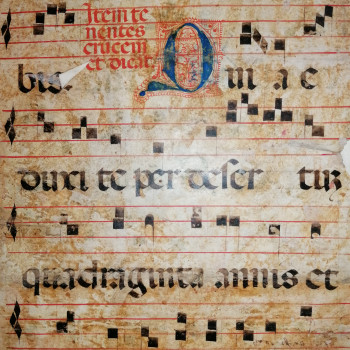 Item te
nentes
crucem
bis. Quia e
duxi te per deser tuz
quadraginta annis et